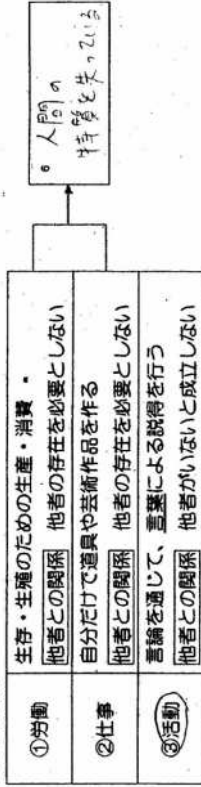 ①労働
生存・生殖のための生産・消費
他者との関係 他者の存在を必要としない
②仕事
自分だけで道具や芸術作品を作る
他者との関係 他者の存在を必要としない
③活動
言論を通じて、言葉による説得を行う
他者との関係 他者がいないと成立しない
6 人間の
特質を失っている